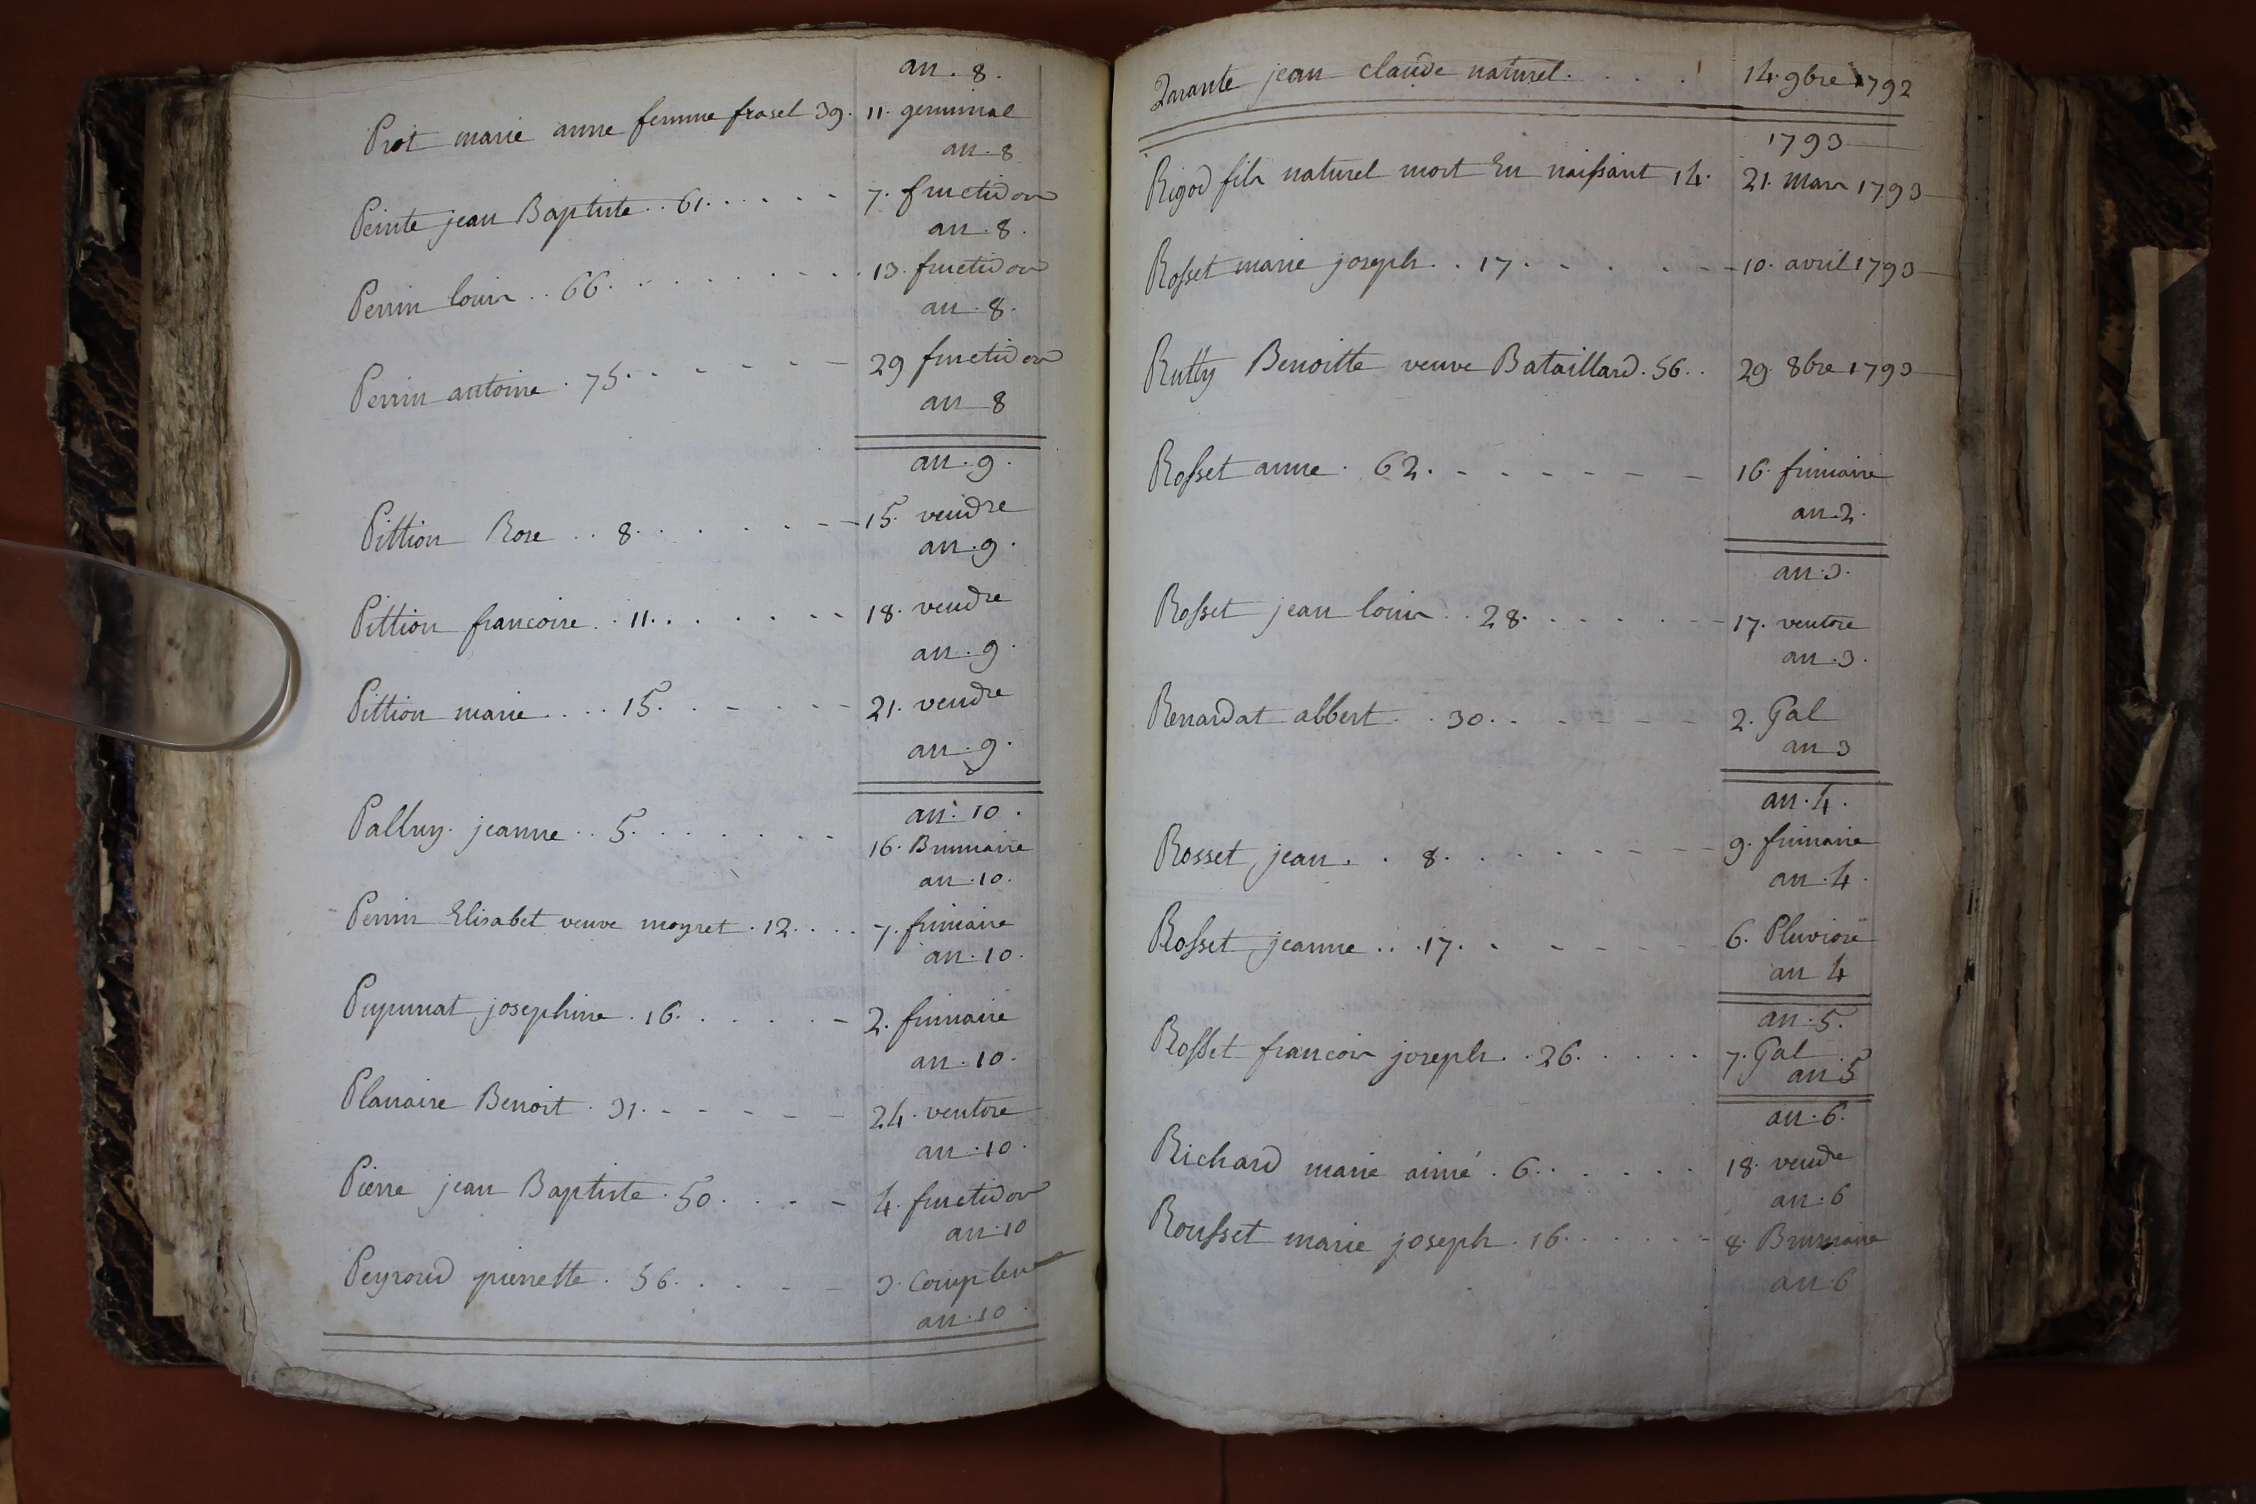 an . 8 .
Prot marie anne femme frasel 39. 11. germinal
an . 8
Peinte jean Baptiste . . 61. . . . . . 7. fructidor
an . 8 .
Perrin louis . . 66. . . . . . . . 13. fructidor
an . 8 .
Perrin antoine . 75. . . . . . 29 fructidor
an 8
an . 9 .
Pittion Rose . . 8. . . . . . . 15. vendre
an . 9 .
Pittion francoise . . 11. . . . . . . 18. vendre
an . 9 .
Pittion marie . . . . 15. . . . . . 21. vendre
an . 9 .
an . 10 .
Palluy . jeanne . . 5. . . . . . . 16. Brumaire
an . 10 .
Perrin Elisabet veuve moyret . 12. . . . 7. frimaire
an . 10 .
josephine . 16. . . . . . 2. frimaire
an . 10 .
Planaire Benoit . 31. . . . . . 24. ventose
an . 10 .
Pierre jean Baptiste . 50. . . . . 4. fructidor
an . 10
Peyroud pierrette . 56. . . . . 3. Complem
an . 10 .
Quarante jean claude naturel . . . . 14. 9bre 1792
1793
Rigod fils naturel mort En naissant 14. 21. Mars 1793
Rosset marie joseph . . 17. . . . . . 10. avril 1793
Rutty Benoitte veuve Bataillard . 56. . 29. 8bre 1793
Rosset anne . 62. . . . . . . 16. frimaire
an . 2 .
an . 3 .
Rosset jean louis . . 28. . . . . . . 17. ventose
an . 3 .
Renardat albert . . 30. . . . . . 2. Gal
an 3
an . 4 .
Rosset jean . . 8. . . . . . . . 9. frimaire
an . 4 .
Rosset jeanne . . . 17. . . . . . . 6. Pluviose
an 4
an . 5 .
Rosset francois joseph . . 26. . . . . 7. Gal
an 5
an . 6 .
Richard marie aimé . 6. . . . . . 18. vendre
an . 6
Rousset marie joseph . 16. . . . . . 8. Brumaire
an . 6